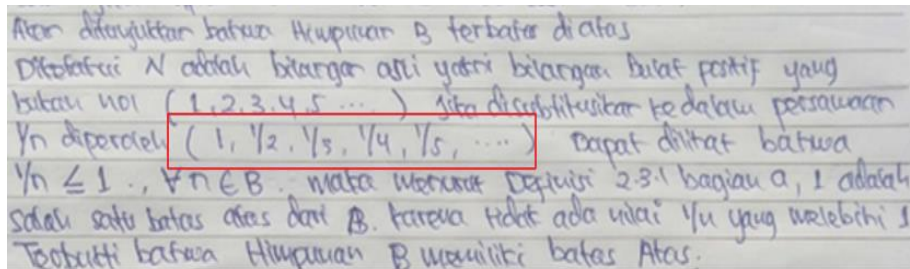 Akan ditunjukkan bahwa Himpunan B terbatas diatas
Diketahui N adalah bilangan asli yakni bilangan bulat positif yang
bukan nol (1, 2, 3, 4, 5 ....) jika disubstitusikan kedalam persamaan
1/n diperoleh (1, 1/2, 1/3, 1/4, 1/5, ....) Dapat dilihat bahwa
1/n ≤ 1 ., ∀n ∈ B. maka menurut Definisi 2.3.1 bagian a, 1 adalah
salah satu batas atas dari B. karena tidak ada nilai 1/n yang melebihi 1
Terbukti bahwa Himpunan B memiliki batas Atas.